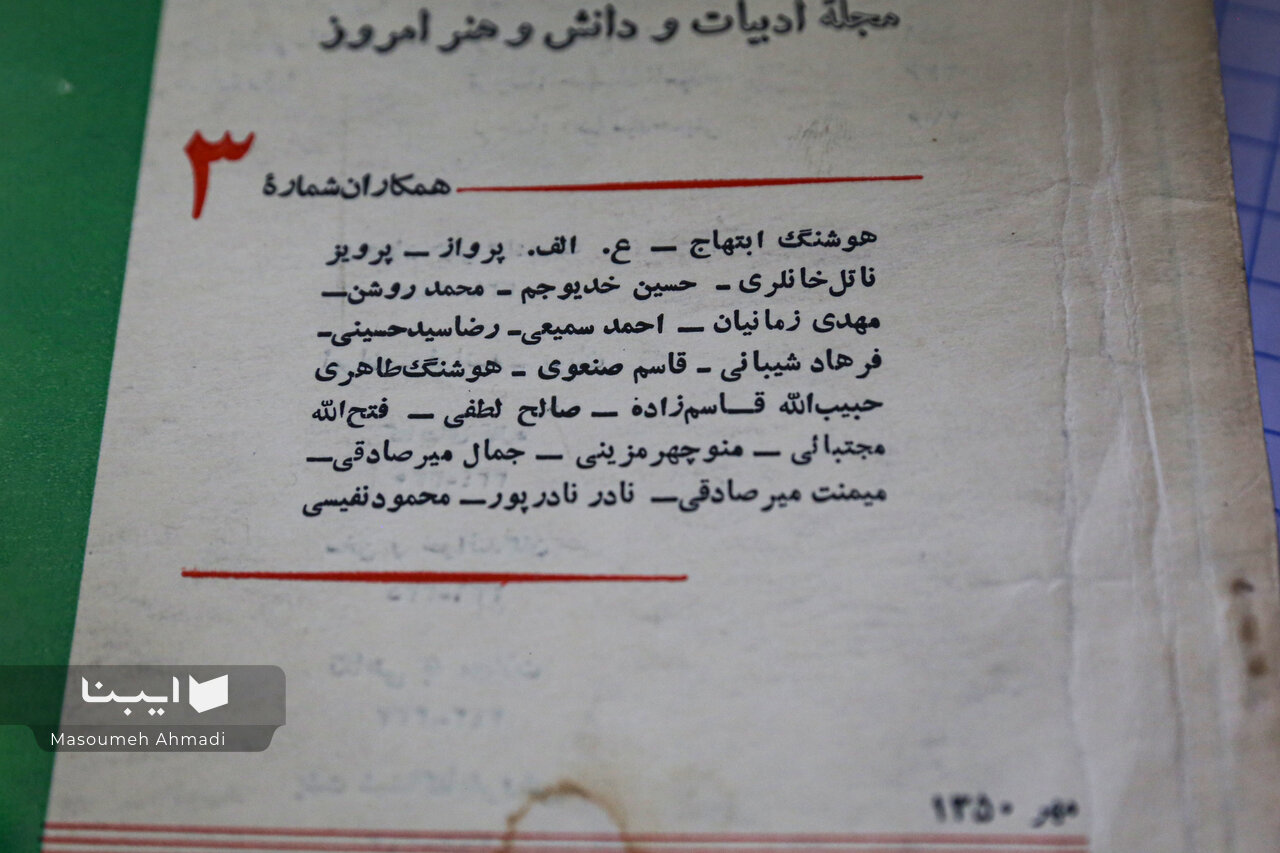 مجلهٔ ادبیات و دانش و هنر امروز
همکاران شمارهٔ ۳
هوشنگ ابتهاج – ع. الف. پرواز – پرویز
ناتل خانلری – حسین خدیوجم – محمد روشن –
مهدی زمانیان – احمد سمیعی – رضا سیدحسینی –
فرهاد شیبانی – قاسم صنعوی – هوشنگ طاهری
حبیب‌الله قاسم‌زاده – صالح لطفی – فتح‌الله
مجتبائی – منوچهر مزینی – جمال میرصادقی –
میمنت میرصادقی – نادر نادرپور – محمود نفیسی
مهر ۱۳۵۰
ایبنا
Masoumeh Ahmadi